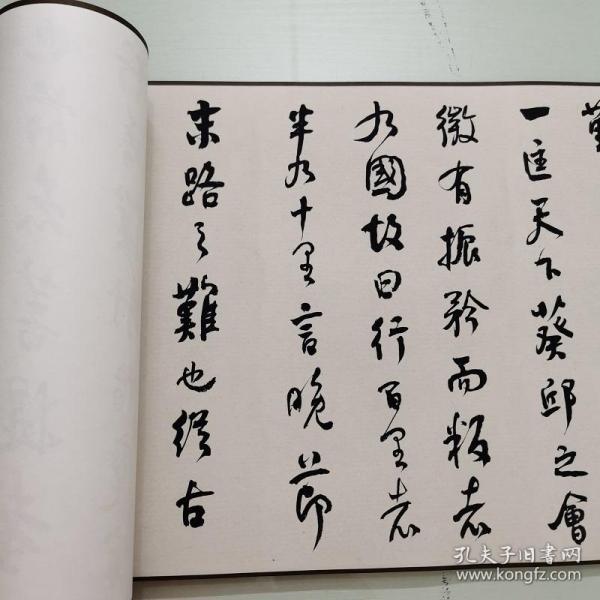 一匡天下葵邱之會
微有振矜而叛者
九國故曰行百里者
半九十里言晚節
末路之難也從古
孔夫子旧书网
www.kongfz.com